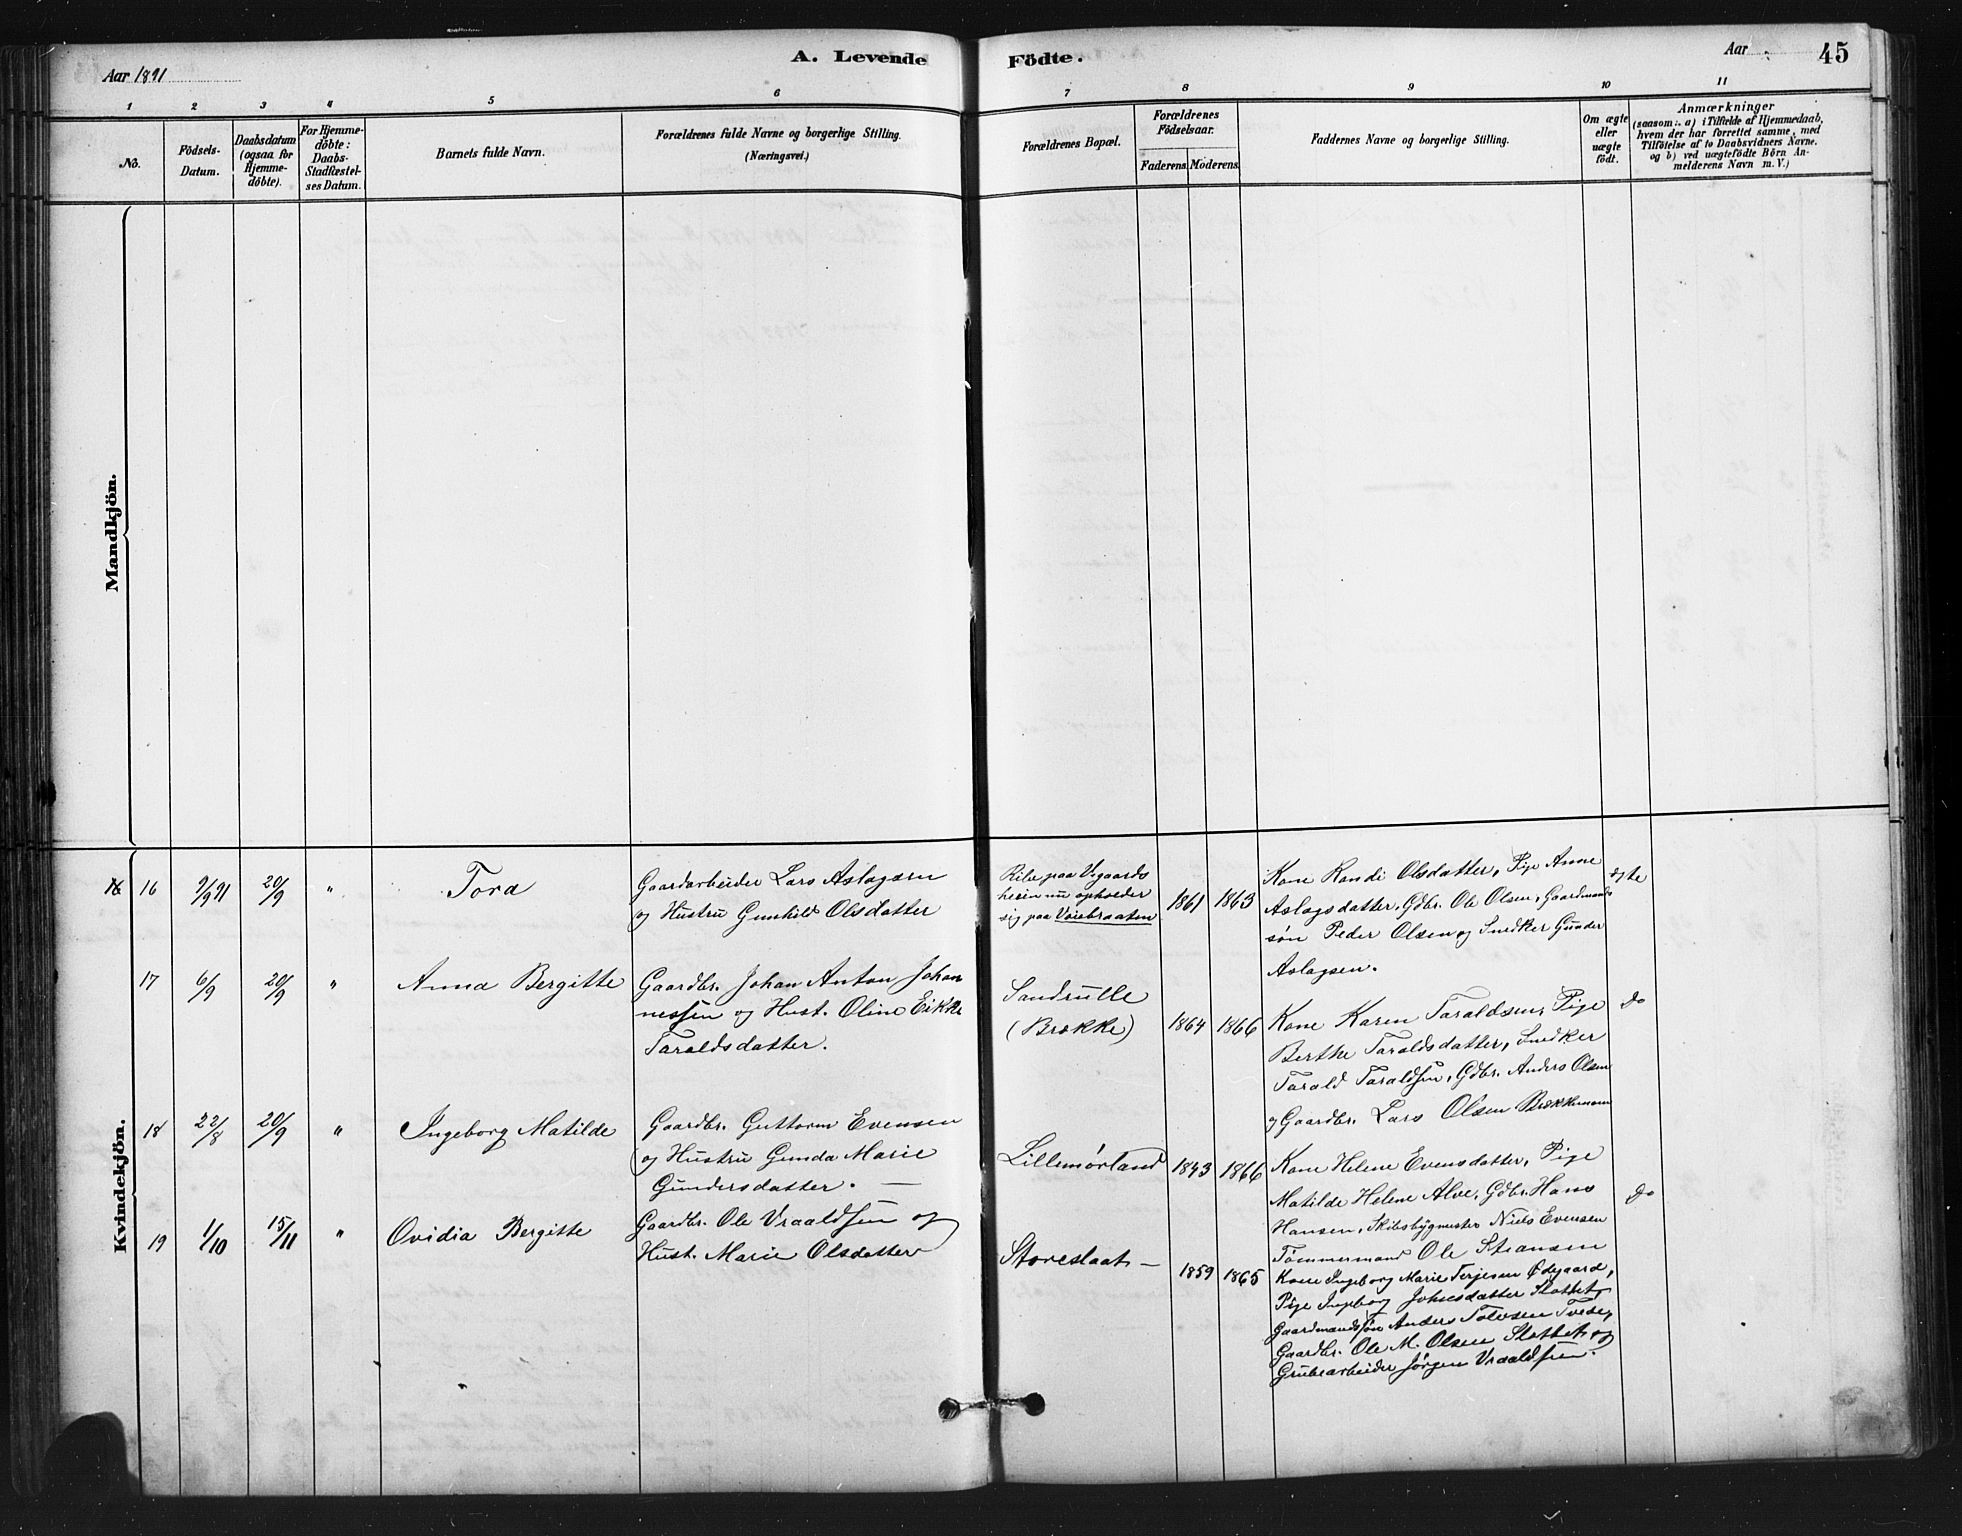 Aar 1891
A. Levende Födte.
Aar
45
1 2 3 4 5 6 7 8 9 10 11
No.
Födsels-
Datum.
Daabsdatum
(ogsaa for
Hjemme-
döbte).
For Hjemme-
döbte:
Daabs-
Stadfæstel-
ses Datum.
Barnets fulde Navn.
Forældrenes fulde Navne og borgerlige Stilling.
(Næringsvei.)
Forældrenes Bopæl.
Forældrenes
Födselsaar.
Faderens. Moderens.
Faddernes Navne og borgerlige Stilling.
Om ægte
eller
uægte
födt.
Anmærkninger
(saasom: a) i Tilfælde af Hjemmedaab,
hvem der har forrettet samme, med
Tilföielse af to Daabsvidners Navne.
og b) ved uægtefödte Börn An-
melderens Navn m. V.)
Mandkjön.
Kvindekjön.
16
9/9 91
20/9
"
Tora
Gaardarbeider Lars Aslagsen
og Hustru Gunhild Olsdatter
paa
heien nu opholder
sig paa Voiebraaten
1861
1863
Kone Randi Olsdatter, Pige Anne
Aslagsdatter, Gdbr. Ole Olsen, Gaardmands
søn Peder Olsen og Snedker Gunder
Aslagsen.
ægte
17
6/9
20/9
"
Anna Bergitte
Gaardbr. Johan Anton Johan
nessen og Hust. Oline Eikke
Taraldsdatter.
Sandrulle
(Brække)
1864
1866
Kone Karen Taraldsen, Pige
Berthe Taraldsdatter, Snedker
Tarald Taraldsen, Gdbr. Anders Olsen
og Gaardbr. Lars Olsen
Do
18
22/8
20/9
"
Ingeborg Matilde
Gaardbr. Guttorm Evensen
og Hustru Gunda Marie
Gundersdatter. —
Lillemørland
1843
1866
Kone Helene Evensdatter, Pige
Matilde Helene Alve, Gdbr. Hans
Hansen, Skibsbygmester Niels Evensen
Tømmermand Ole
Do
19
1/10
15/11
"
Ovidia Bergitte
Gaardbr. Ole Vraaldsen og
Hust. Marie Olsdatter
Storeslaat —
1859
1865
Kone Ingeborg Marie Terjesen Ødegaard,
Pige Ingeborg
Gaardmandssøn Anders Tolvsen
Gaardbr. Ole M. Olsen og
Grubearbeider Jørgen Vraaldsen.